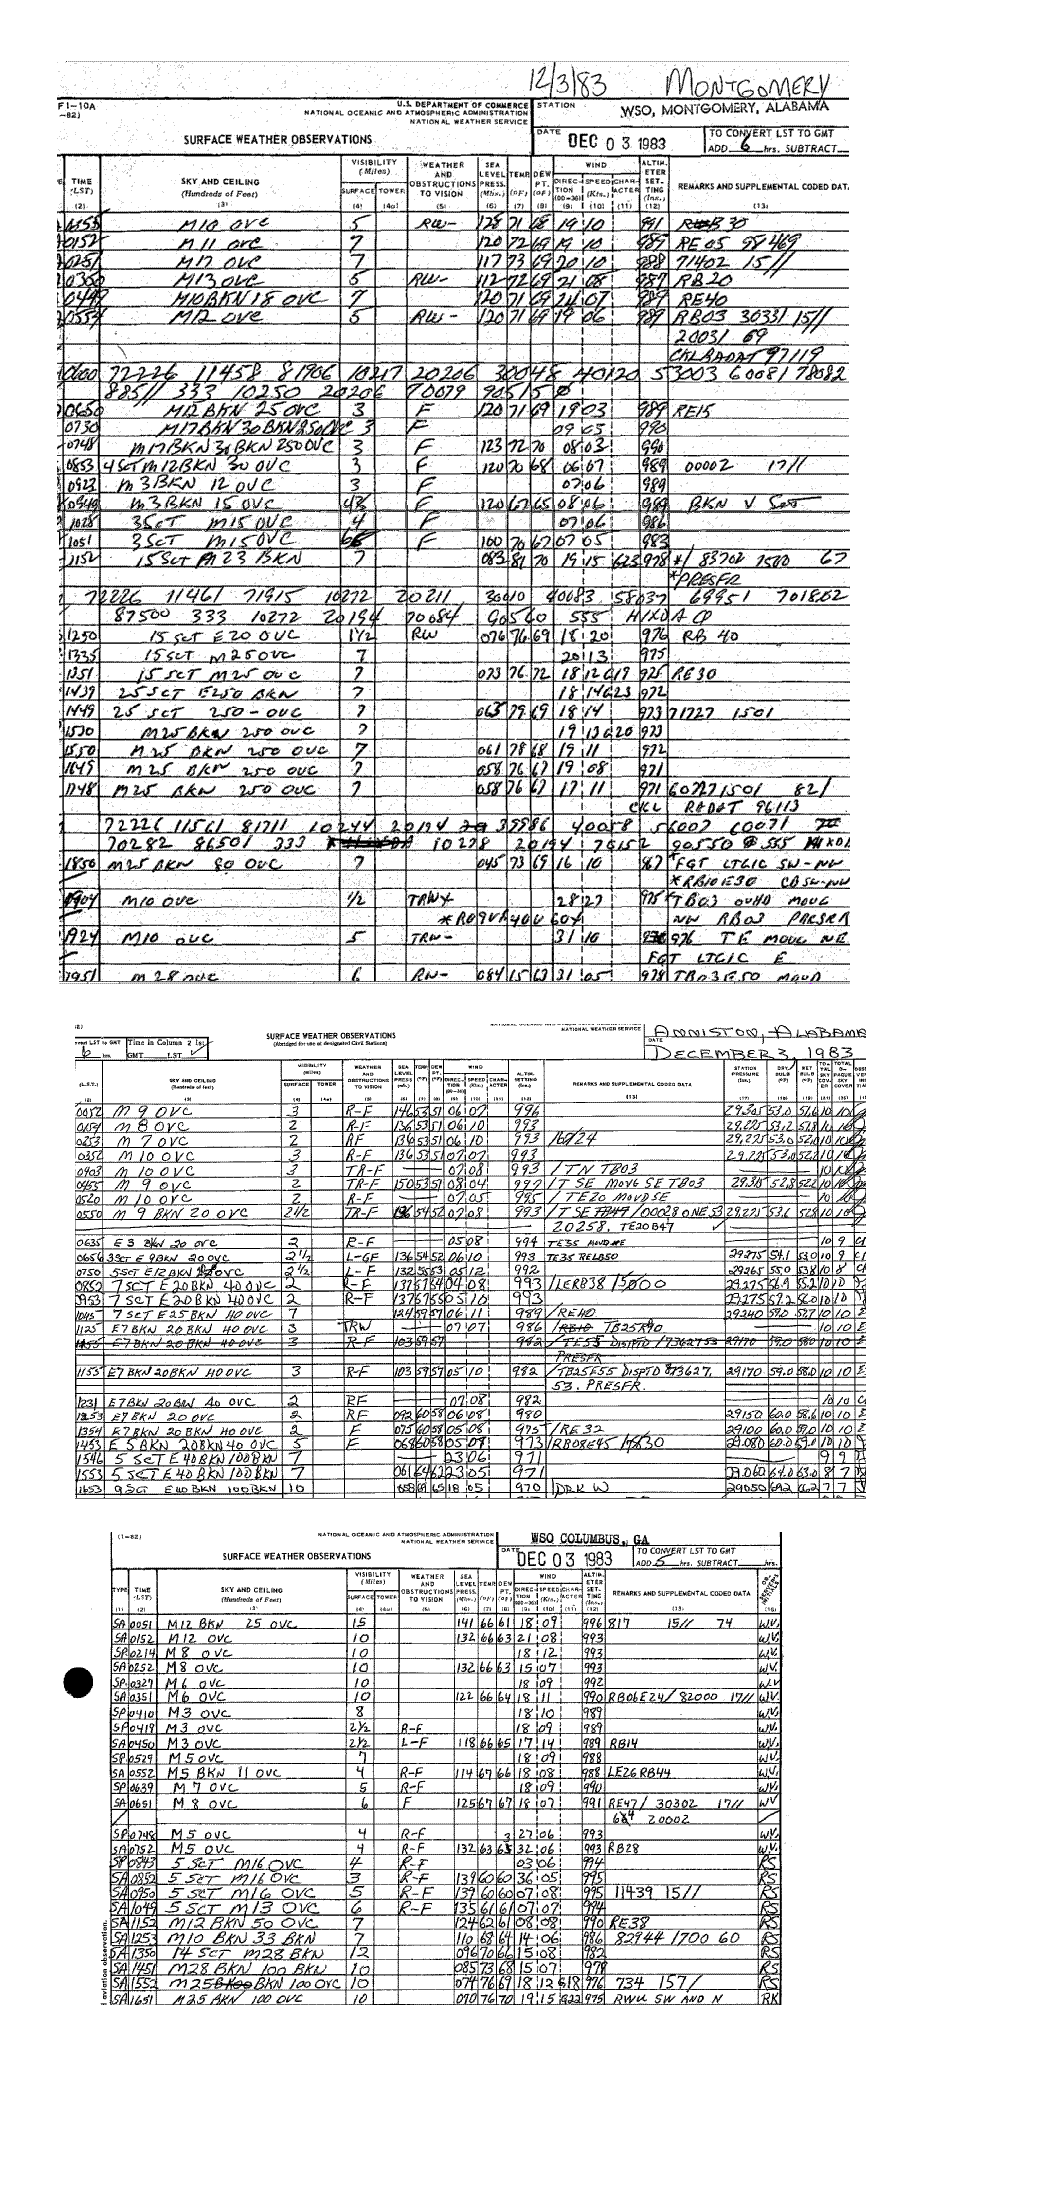 12/3/83 MONTGOMERY
F 1-10A U.S. DEPARTMENT OF COMMERCE STATION
-82) NATIONAL OCEANIC AND ATMOSPHERIC ADMINISTRATION WSO, MONTGOMERY, ALABAMA
NATIONAL WEATHER SERVICE
SURFACE WEATHER OBSERVATIONS DATE DEC 03 1983 TO CONVERT LST TO GMT
ADD 6 hrs. SUBTRACT
TIME (LST) SKY AND CEILING (Hundreds of Feet) VISIBILITY (Miles) SURFACE TOWER WEATHER AND OBSTRUCTIONS TO VISION SEA LEVEL PRESS. (Mbs.) TEMP (°F) DEW PT. (°F) WIND DIRECTION (00-36) SPEED (Kts.) CHARACTER ALTIMETER SETTING (Ins.) REMARKS AND SUPPLEMENTAL CODED DATA
(2) (3) (4) (4a) (5) (6) (7) (8) (9) (10) (11) (12) (13)
M10 OVC 5 RW- 71 68 19 10 991
0152 M11 OVC 7 120 72 69 19 10 989 RE05 98469
0251 M12 OVC 7 117 73 69 20 10 988 71402 15//
M13 OVC 5 RW- 112 72 69 21 08 987 RB20
M10 BKN 18 OVC 7 120 71 69 24 07 989 RE40
M12 OVC 5 RW- 120 71 69 19 06 989 RB03 30331 15//
20031 69
0600 72226 11458 81706 10217 20206 30048 40120 53003 60081 78082
885// 333 10250 20206 70079 90515
0650 M12 BKN 25 OVC 3 F 120 71 69 19 03 989 RE15
0730 M17 BKN 30 BKN 250 OVC 3 F 09 05 990
0748 M17 BKN 30 BKN 250 OVC 3 F 123 72 70 08 03 990
0853 4 SCT M12 BKN 30 OVC 3 F 120 70 68 06 07 989 00002 17//
0923 M3 BKN 12 OVC 3 F 07 06 989
M3 BKN 15 OVC F 120 67 65 08 06 989 BKN V SCT
1028 3 SCT M15 OVC 4 F 07 06 986
1051 3 SCT M15 OVC F 100 70 67 07 05 983
1152 15 SCT M23 BKN 7 083 81 70 19 15 G23 978 67
*PRESFR
72226 11461 71915 10272 20211 30010 40083 58037 69951
87500 333 10272 20194 70084 90540 555
1250 15 SCT E20 OVC 1½ RW 076 76 69 18 20 976 RB 40
1335 15 SCT M25 OVC 7 20 13 975
1351 15 SCT M25 OVC 7 073 76 72 18 12 G19 975 RE30
1439 25 SCT E250 BKN 7 18 14 G23 972
1449 25 SCT 250 - OVC 7 063 79 69 18 14 973 71727 1501
1530 M25 BKN 250 OVC 7 19 13 G20 973
1550 M25 BKN 250 OVC 7 061 78 68 19 11 972
1649 M25 BKN 250 OVC 7 058 76 67 19 08 971
1748 M25 BKN 250 OVC 7 058 76 67 17 11 971 60727 1501 82/
CKL RADAT 96113
72226 11561 81711 10244 20194 39986 40058 56007 60071
70282 86501 333 10278 20194 70152 90550
1850 M25 BKN 80 OVC 7 045 73 69 16 10 967 FQT LTGIC SW-NW
*RB10E30 CB SW-NW
1904 M10 OVC ½ TRW+ 28 27 975 TB03 OVHD MOVG
NW RB03 PRESRR
1924 M10 OVC 5 TRW- 31 10 976 TE MOVG NE
FQT LTGIC E
1951 M28 OVC 6 RW- 084 65 63 31 05 978 TB03E50 MOVD
NATIONAL WEATHER SERVICE ANNISTON, ALABAMA
LST to GMT 6 hrs. Time in Column 2 is: GMT LST ✓ SURFACE WEATHER OBSERVATIONS DATE DECEMBER 3, 1983
(Abridged for use at designated Civil Stations)
(L.S.T.) SKY AND CEILING (Hundreds of feet) VISIBILITY (Miles) SURFACE TOWER WEATHER AND OBSTRUCTIONS TO VISION SEA LEVEL PRESS. WIND DIRECTION SPEED (Kts.) ALTIM. SETTING REMARKS AND SUPPLEMENTAL CODED DATA STATION PRESSURE (Ins.) DRY BULB (°F) WET BULB (°F) TOTAL SKY COVER
0052 M 9 OVC 3 R-F 146 53 51 06 07 996 29.305 53.0 51.6 10 10
0154 M 8 OVC 2 R-F 136 53 51 06 10 993 29.225 53.2 10 10
0253 M 7 OVC 2 RF 136 53 51 06 10 993 29.225 53.0 10 10
0352 M 10 OVC 3 R-F 136 53 51 07 07 993 29.225 53.0 10 10
0403 M 10 OVC 3 TR-F 07 08 993 /TN TB03
0455 M 10 OVC 2 TR-F 150 53 51 08 04 997 /T SE MOVG SE TB03 52.8 10 10
0520 M 10 OVC 2 R-F 07 05 995 /TE20 MOVD SE
0550 M 9 BKN 20 OVC 2½ TR-F 136 54 52 07 08 993 29.225 53.6 10 10
20258. TE20B47 ✓
0635 E 3 BKN 20 OVC 2 R-F 05 08 994 TE35 MOVD NE 10 9
0656 3 SCT E 9 BKN 20 OVC 2½ L-GF 136 54 52 06 10 993 TE35 RELB50 29.275 54.1 53.0 10 9
0750 5 SCT E 12 BKN OVC 2½ L-F 132 55 53 05 12 992 29.265 55.0 53.8 10 8
0852 7 SCT E 20 BKN 40 OVC 2 R-F 137 57 54 04 08 993 /LERB38 29.275 10 10
0953 7 SCT E 20 BKN 40 OVC 2 R-F 137 57 55 05 10 993 29.275 57.2 56.0 10 10
1045 7 SCT E 25 BKN 40 OVC 7 124 59 57 06 11 989 /RE40 29.240 59.0 10 10
1125 E 7 BKN 20 BKN 40 OVC 3 TRW 07 07 986 10 10
1155 E 7 BKN 20 BKN 40 OVC 3 R-F 103 59 57 982
PRESFR
1155 E 7 BKN 20 BKN 40 OVC 3 R-F 103 59 57 05 10 982 /TB25E55 DISPTD 873627. 29.170 59.0 58.0 10 10
53. PRESFR.
1231 E 7 BKN 20 BKN 40 OVC 2 RF 07 08 982 10 10
1253 E 7 BKN 20 OVC 2 RF 092 60 58 06 08 980 29150 60.0 58.6 10 10
1354 E 7 BKN 20 BKN 40 OVC 2 F 075 60 58 05 08 975 /RE 32 29100 60.0 10 10
1453 E 5 BKN 20 BKN 40 OVC 5 F 069 60 58 05 07 973 29.080 60.0 59.0 10 10
1546 5 SCT E 40 BKN 100 BKN 7 23 06 971 9 9
1553 5 SCT E 40 BKN 100 BKN 7 061 64 62 23 05 971 29.060 64.0 63.0 8 7
1653 9 SCT E 40 BKN 100 BKN 10 058 69 65 18 05 970 DRK W 29050 69.2 66.2 7 7
(1-82) NATIONAL OCEANIC AND ATMOSPHERIC ADMINISTRATION WSO COLUMBUS, GA
NATIONAL WEATHER SERVICE
SURFACE WEATHER OBSERVATIONS DATE DEC 03 1983 TO CONVERT LST TO GMT
ADD 5 hrs. SUBTRACT hrs.
TYPE TIME (LST) SKY AND CEILING (Hundreds of Feet) VISIBILITY (Miles) SURFACE TOWER WEATHER AND OBSTRUCTIONS TO VISION SEA LEVEL PRESS. (Mbs.) TEMP (°F) DEW PT. (°F) WIND DIRECTION (00-36) SPEED (Kts.) CHARACTER ALTIMETER SETTING (Ins.) REMARKS AND SUPPLEMENTAL CODED DATA
(1) (2) (3) (4) (4a) (5) (6) (7) (8) (9) (10) (11) (12) (13) (15)
SA 0051 M12 BKN 25 OVC 15 141 66 61 18 09 996 817 15// 74 WV
SA 0152 M12 OVC 10 132 66 63 21 08 993 WV
SP 0214 M8 OVC 10 18 12 993 WV
SA 0252 M8 OVC 10 132 66 63 15 07 993 WV
SP 0327 M6 OVC 10 18 09 992 WV
SA 0351 M6 OVC 10 122 66 64 18 11 990 RB06E24/ 82000 17// WV
SP 0410 M3 OVC 8 18 10 989 WV
SP 0419 M3 OVC 2½ R-F 18 09 989 WV
SA 0450 M3 OVC 2½ L-F 118 66 65 17 14 989 RB14 WV
SP 0529 M5 OVC 7 18 09 988 WV
SA 0552 M5 BKN 11 OVC 4 R-F 114 67 66 18 08 988 LE26RB44 WV
SP 0639 M7 OVC 5 R-F 18 09 990 WV
SA 0651 M8 OVC 6 F 125 67 67 18 07 991 RE47/ 30302 17// WV
20002
SP 0748 M5 OVC 4 R-F 27 06 993 WV
SA 0752 M5 OVC 4 R-F 132 63 63 32 06 993 RB28 WV
SP 0843 5 SCT M16 OVC 4 R-F 03 06 994 RS
SA 0852 5 SCT M16 OVC 3 R-F 139 60 60 36 05 995 RS
SA 0950 5 SCT M16 OVC 5 R-F 139 60 60 07 08 995 11439 15// RS
SA 1049 5 SCT M13 OVC 6 R-F 135 61 61 07 07 994 RS
SA 1152 M12 BKN 50 OVC 7 124 62 61 08 08 990 RE38 RS
SA 1253 M10 BKN 33 BKN 7 110 68 64 14 06 986 82944 1700 60 RS
SA 1350 14 SCT M28 BKN 12 096 70 66 15 08 982 RS
SA 1451 M28 BKN 100 BKN 10 085 73 68 15 07 979 RS
SA 1552 M25 BKN 100 OVC 10 074 76 69 18 12 G18 976 734 157/ RS
SA 1651 M25 BKN 100 OVC 10 070 76 70 19 15 G22 975 RWU SW AND N RK
aviation observation.